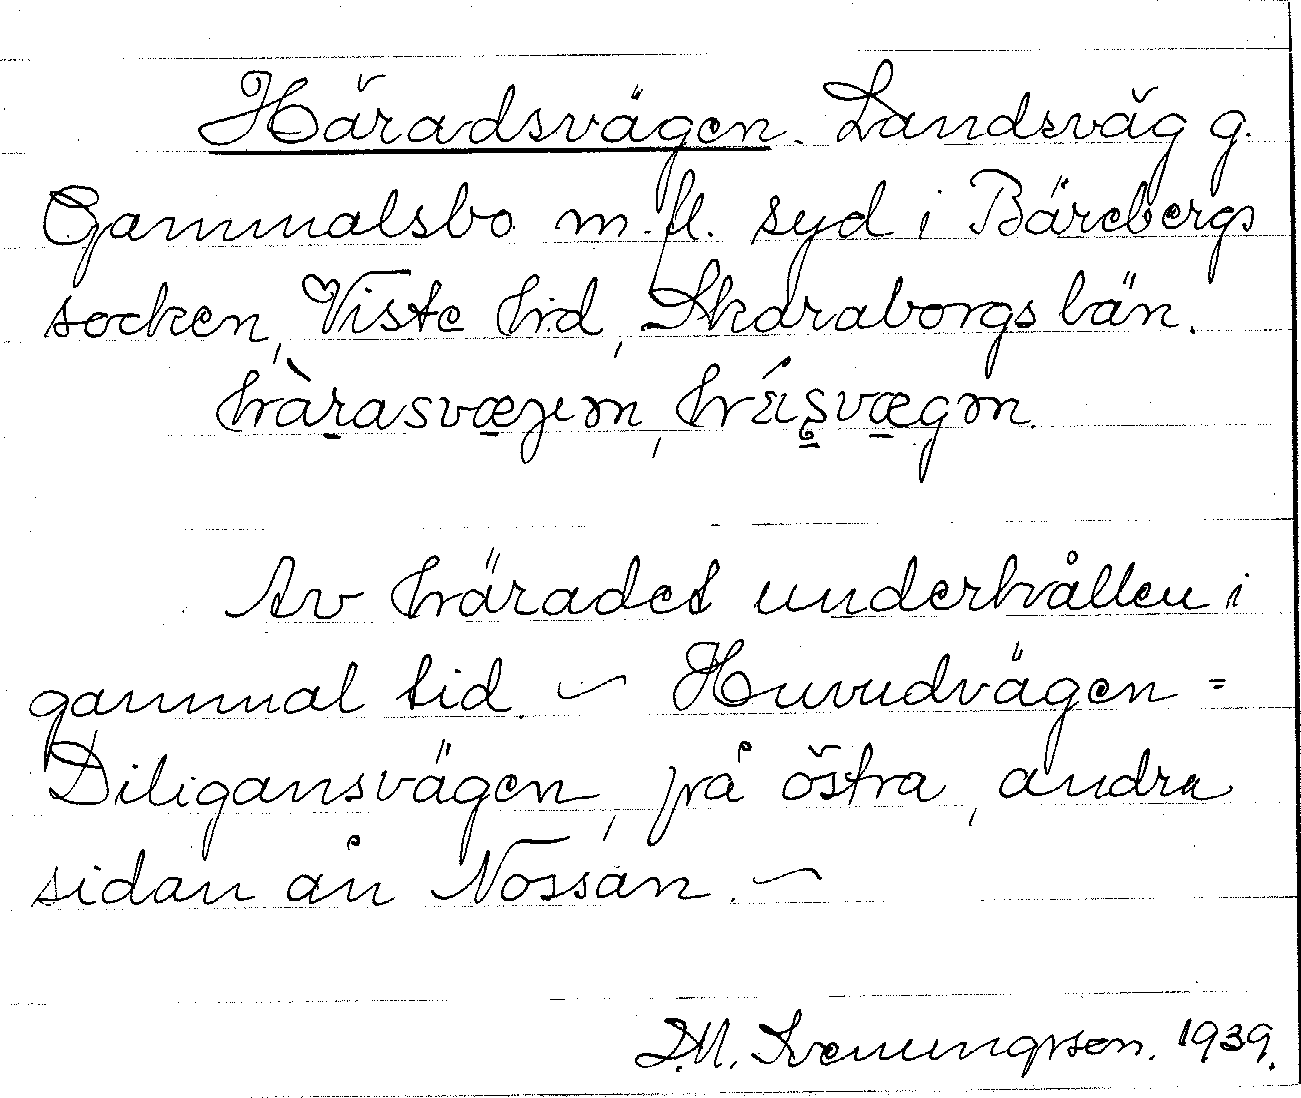 Häradsvägen. Landsväg g.
Gammalsbo m.fl. syd i Bärebergs
socken, Viste hd, Skaraborgs län.
hàrasvægen,
Av häradet underhållen i
gammal tid. ~ Huvudvägen =
Diligansvägen, på östra, andra
sidan ån Nossan. ~
D.M. Svenungsson. 1939.